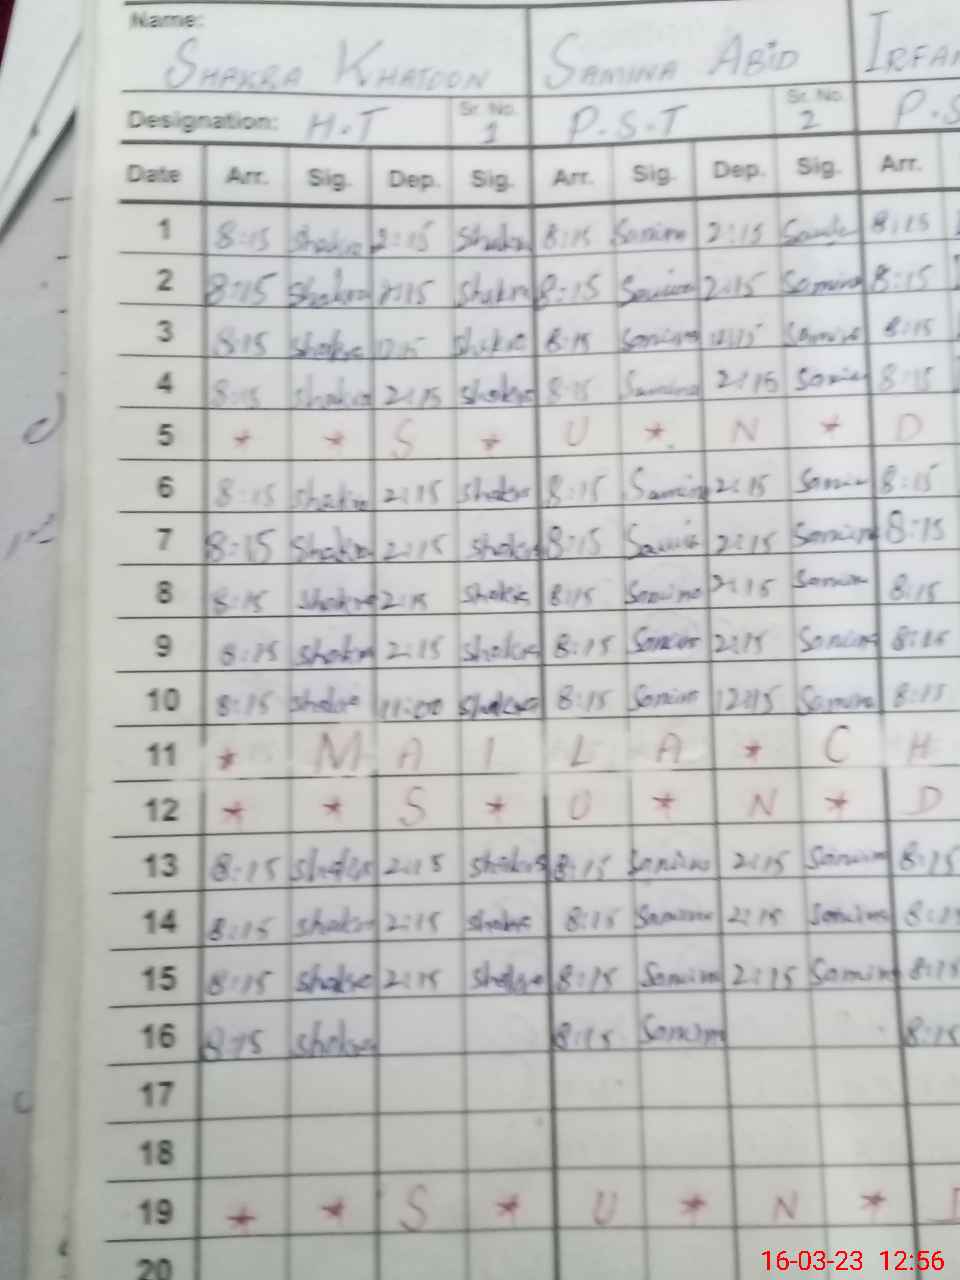 Name:
SHAKRA KHATOON SAMINA ABID IRFA
Designation: H.T Sr. No. 1 P.S.T Sr. No. 2 P.S
Date Arr. Sig. Dep. Sig. Arr. Sig. Dep. Sig. Arr.
1 8:15 Shakra 2:15 Shakra 8:15 Samina 2:15 8:15
2 8:15 Shakra 2:15 Shakra 8:15 Samina 2:15 Samina 8:15
3 8:15 Shakra Shakra 8:15 Samina Samina 8:15
4 8:15 Shakra 2:15 Shakra 8:15 Samina 2:15 Samina 8:15
5 * * S * U * N * D
6 8:15 Shakra 2:15 Shakra 8:15 Samina 2:15 Samina 8:15
7 8:15 Shakra 2:15 Shakra 8:15 Samina 2:15 Samina 8:15
8 8:15 Shakra 2:15 Shakra 8:15 Samina 2:15 Samina 8:15
9 8:15 Shakra 2:15 Shakra 8:15 Samina 2:15 Samina 8:15
10 8:15 Shakra 11:00 Shakra 8:15 Samina 12:15 Samina 8:15
11 * M A I L A * C H
12 * * S * U * N * D
13 8:15 Shakra 2:15 Shakra 8:15 Samina 2:15 Samina 8:15
14 8:15 Shakra 2:15 Shakra 8:15 Samina 2:15 Samina 8:15
15 8:15 Shakra 2:15 Shakra 8:15 Samina 2:15 Samina 8:15
16 8:15 Shakra 8:15 Samina 8:15
17
18
19 * * S * U * N *
20
16-03-23 12:56